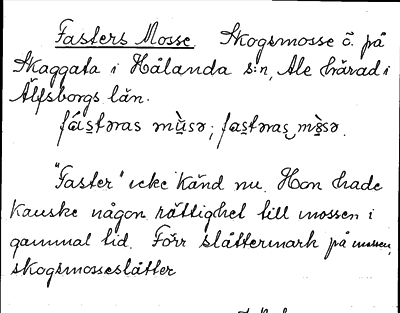 Fasters Mosse. Skogsmosse ö. på
Skaggata i Hålanda s:n, Ale härad i
Älfsborgs län.
"Faster" icke känd nu. Hon hade
kanske någon rättighet till mossen i
gammal tid. Förr slåttermark på mossen,
skogsmosseslåtter